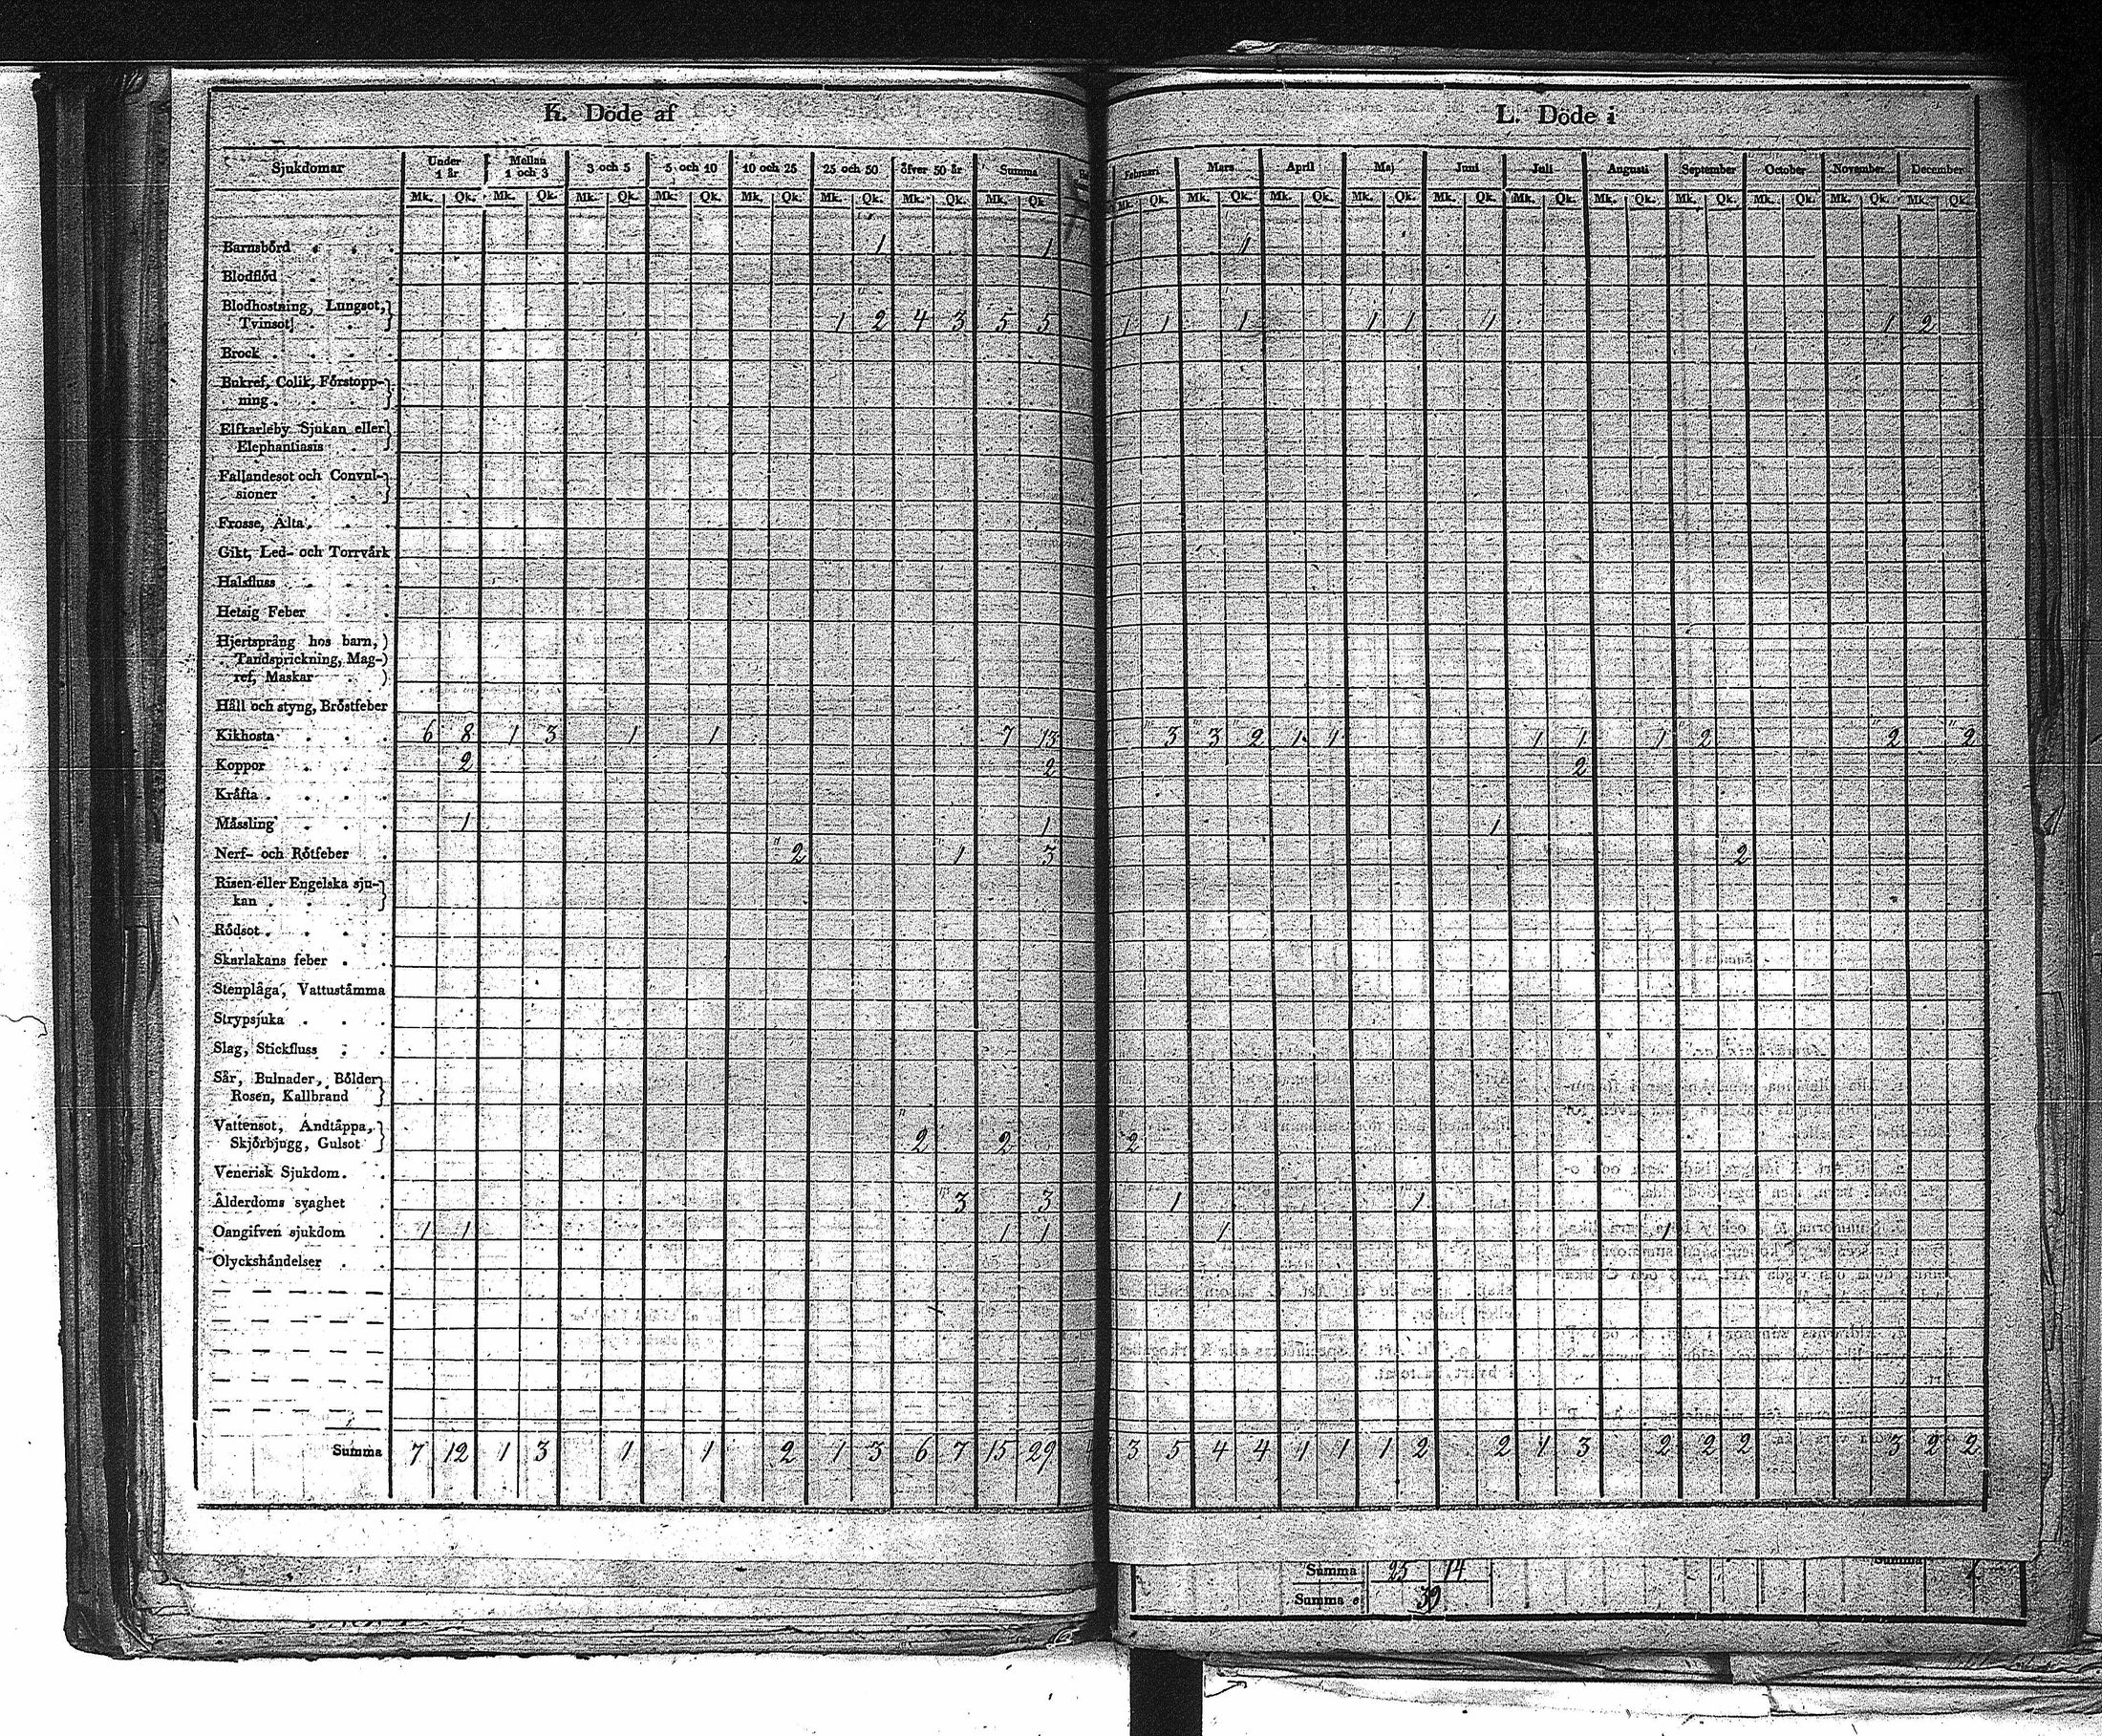 K. Döde af
L. Döde i
Sjukdomar Under 1 år Mellan 1 och 3 3 och 5 5 och 10 10 och 25 25 och 50 öfver 50 år Summa Februari Mars April Maj Juni Juli Augusti September October November December
Mk. Qk. Mk. Qk. Mk. Qk. Mk. Qk. Mk. Qk. Mk. Qk. Mk. Qk. Mk. Qk. Mk. Qk. Mk. Qk. Mk. Qk. Mk. Qk. Mk. Qk. Mk. Qk. Mk. Qk. Mk. Qk. Mk. Qk. Mk. Qk. Mk. Qk.
Barnsbörd 1 1 1
Blodflöd
Blodhostning, Lungsot,
Tvinsot 1 2 4 3 5 5 1 1 1 1 1 1 1 2
Brock
Bukref, Colik, Förstopp-
ning
Elfkarleby Sjukan eller
Elephantiasis
Fallandesot och Convul-
sioner
Frosse, Älta
Gikt, Led- och Torrvärk
Halsfluss
Hetsig Feber
Hjertsprång hos barn,
Tandsprickning, Mag-
ref, Maskar
Håll och styng, Bröstfeber
Kikhosta 6 8 1 3 1 1 7 13 3 3 2 1 1 1 1 1 2 2 2
Koppor 2 2 2
Kräfta
Mässling 1 1 1
Nerf- och Rötfeber 2 1 3 2
Risen eller Engelska sju-
kan
Rödsot
Skarlakans feber
Stenplåga, Vattustämma
Strypsjuka
Slag, Stickfluss
Sår, Bulnader, Bölder
Rosen, Kallbrand
Vattensot, Andtäppa,
Skjörbjugg, Gulsot 2 2 2
Venerisk Sjukdom
Ålderdoms svaghet 3 3 1 1
Oangifven sjukdom 1 1 1 1 1 1
Olyckshändelser
Summa 7 12 1 3 1 1 2 1 3 6 7 15 29 3 5 4 4 1 1 1 2 2 1 3 2 2 2 3 2 2
Summa 25 14
Summa
Summa 39